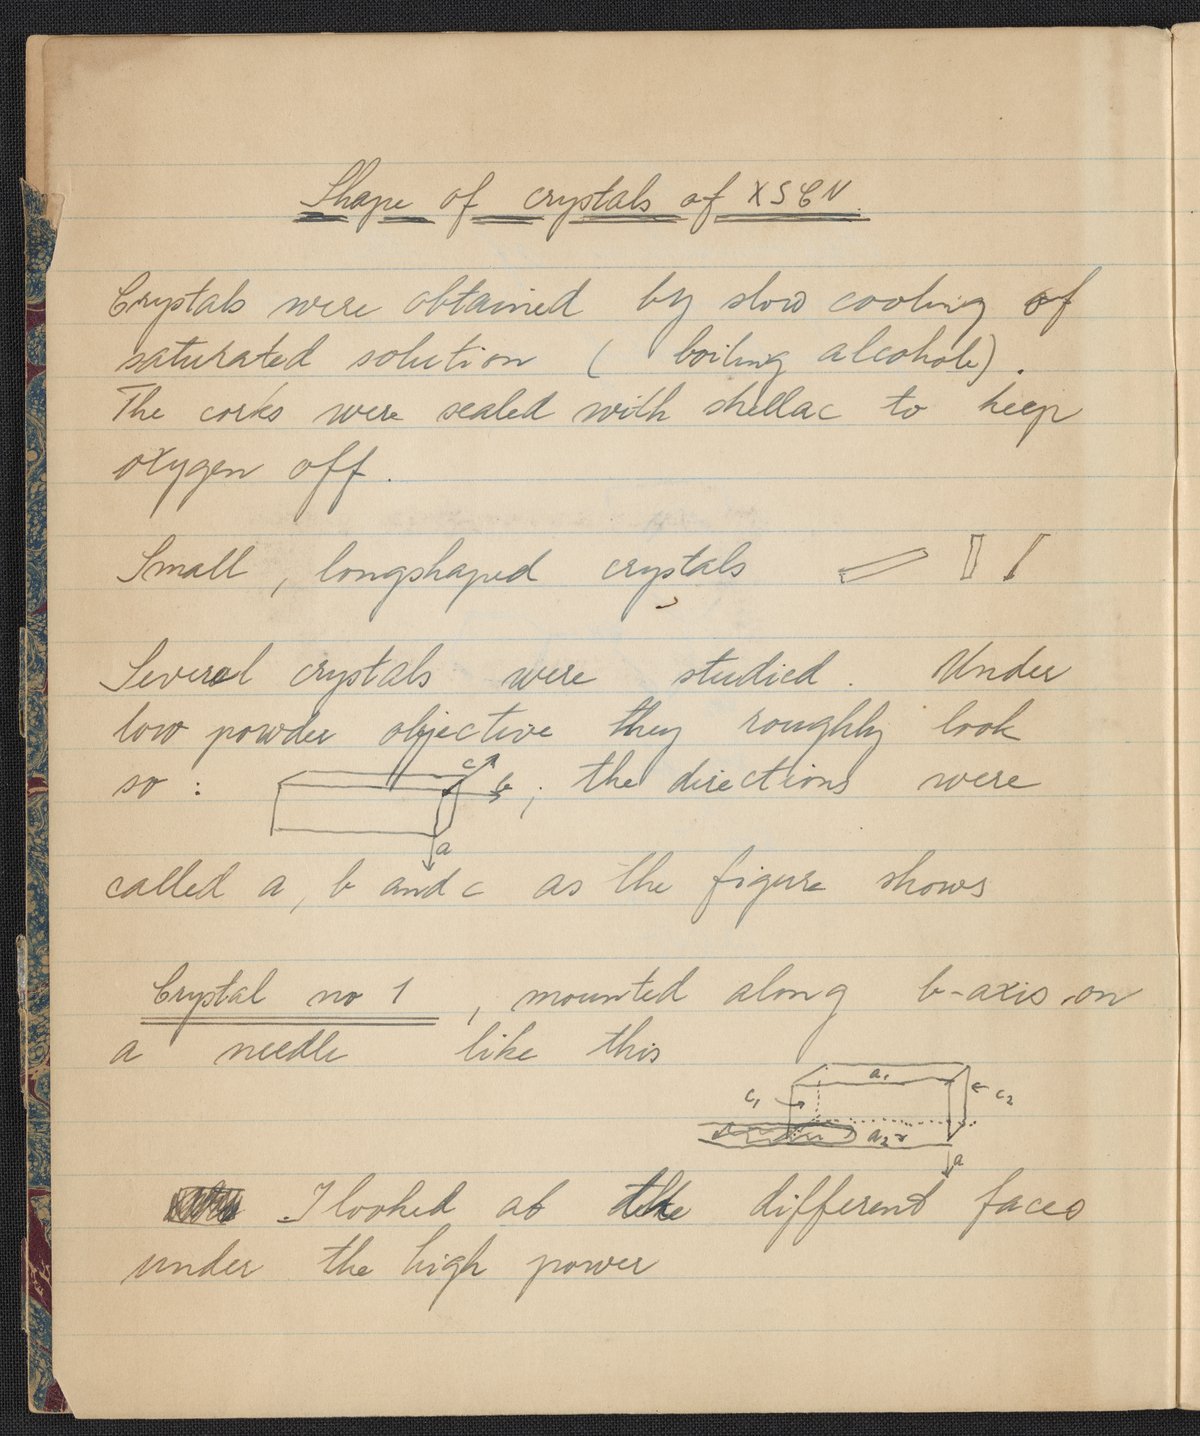 Shape of crystals of KSCN.
Crystals were obtained by slow cooling of
saturated solution ( boiling alcohole).
The corks were sealed with shellac to keep
oxygen off.
Small, longshaped crystals
Several crystals were studied. Under
low powder objective they roughly look
so : c b a ; the directions were
called a, b and c as the figure shows
Crystal no 1, mounted along b-axis on
a needle like this
a₁
c₁ c₂
a₂
a
I looked at the different faces
under the high power